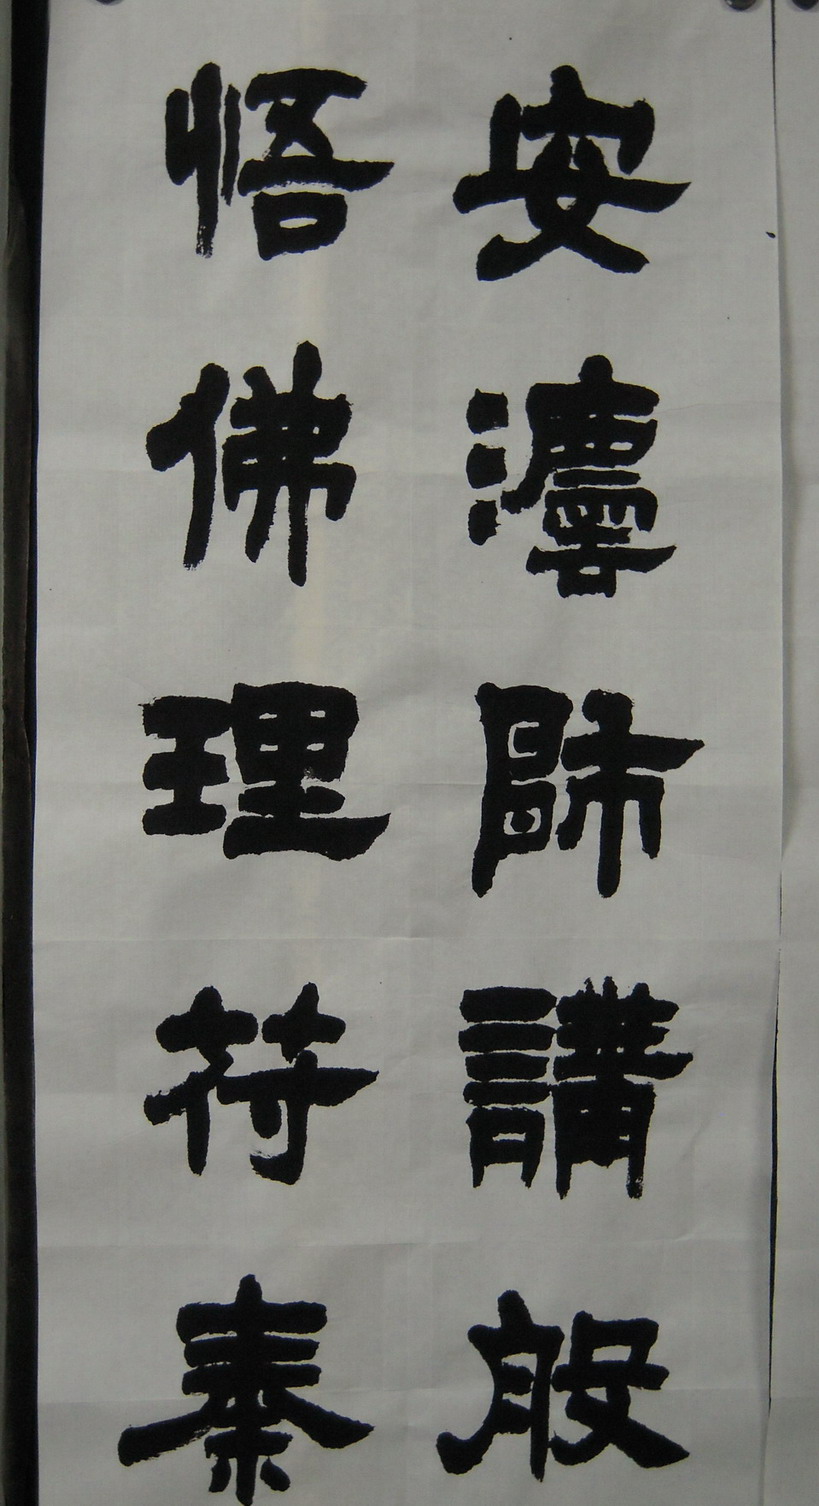 安灋師講般
悟佛理符秦